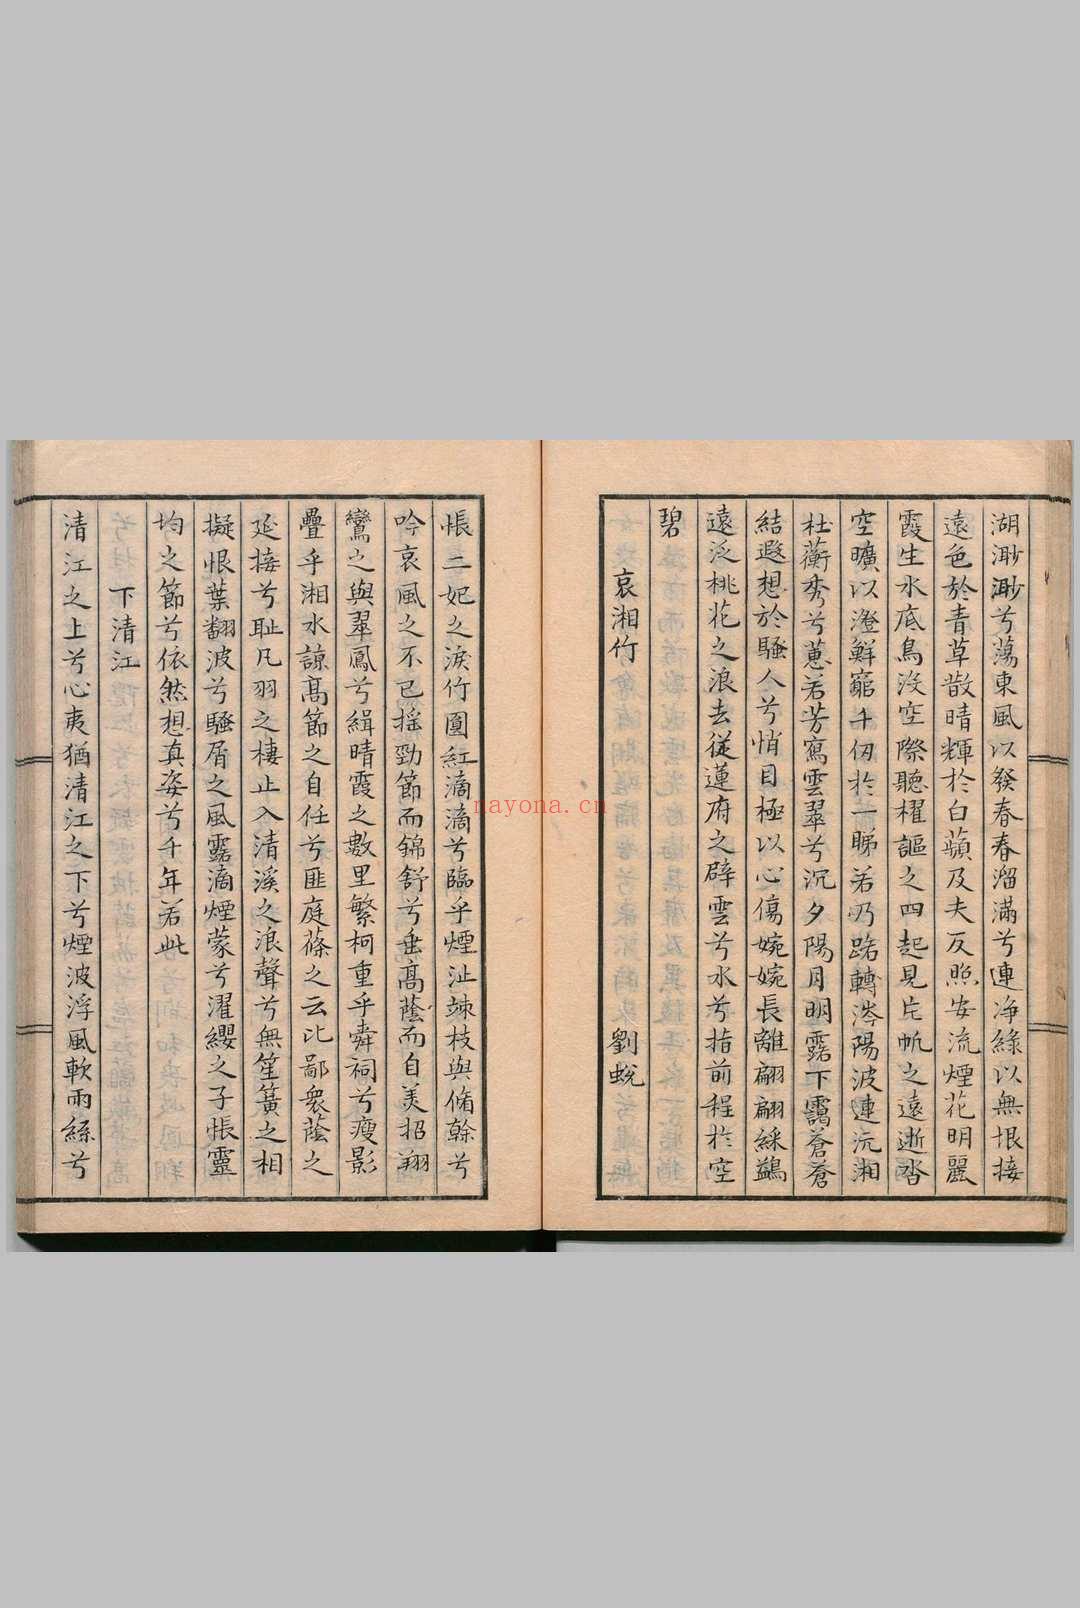 湖渺渺兮蕩東風以發春春溜滿兮連净綠以無垠接
遠色於青草散晴輝於白蘋及夫反照安流煙花明麗
霞生水底鳥没空際聽櫂謳之四起見片帆之遠逝沓
空曠以澄鮮窮千仞於一睇若乃路轉涔陽波連沅湘
杜蘅秀兮蕙若芳寫雲翠兮沉夕陽月明露下靄蒼蒼
結遐想於騷人兮悄目極以心傷婉婉長離翩翩綵鷁
遠泛桃花之浪去從蓮府之辟雲兮水兮指前程於空
碧
哀湘竹 劉蛻
悵二妃之淚竹圓紅滴滴兮臨乎煙沚竦枝與脩幹兮
吟哀風之不已揺勁節而錦舒兮垂高蔭而自美招翔
鸞之與翠鳳兮緝晴霞之數里繁柯重乎舜祠兮瘦影
疊乎湘水諒高節之自任兮匪庭篠之云比鄙衆蔭之
延接兮耻凡羽之棲止入清溪之浪聲兮無笙簧之相
擬恨葉翻波兮騷屑之風露滴煙蒙兮濯纓之子悵靈
均之節兮依然想真姿兮千年若此
下清江
清江之上兮心夷猶清江之下兮煙波浮風軟雨絲兮
nayona.cn